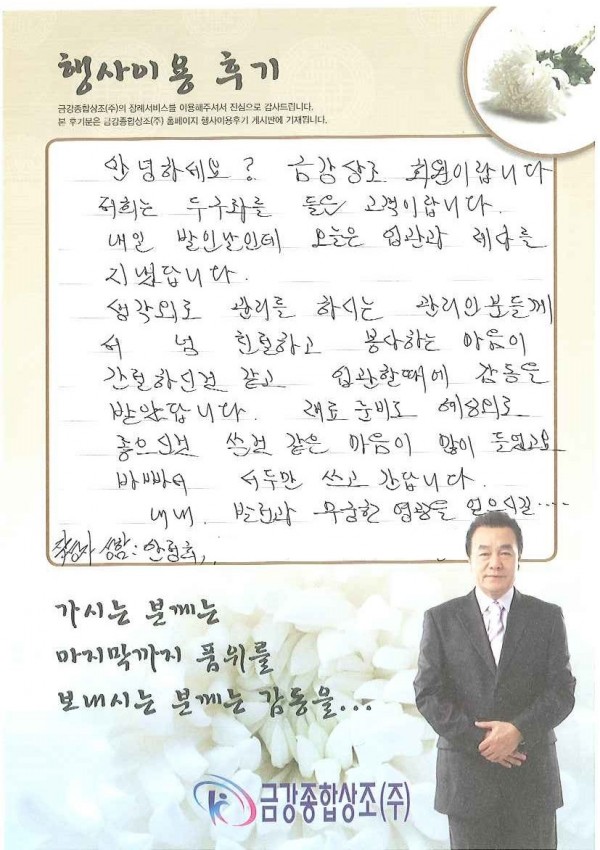 행사이용 후기
금강종합상조(주)의 장례서비스를 이용해주셔서 진심으로 감사드립니다.
본 후기분은 금강종합상조(주) 홈페이지 행사이용후기 게시판에 기재됩니다.
안녕하세요? 금강상조 회원이랍니다
저희는 두구좌를 들은 고객이랍니다.
내일 발인날인데 오늘은 입관과 제사를
지냈답니다.
생각외로 관리를 하시는 관리인분들께
서 넘 친절하고 봉사하는 마음이
간절하신것 같고 입관할때에 감동을
받았답니다. 재료 준비도 예상외로
좋으신것 쓰신것 같은 마음이 많이 들었고요
바빠서 서두만 쓰고 간답니다.
내내. 발전과 무궁한 영광을 얻으시길....
작성자 성함:
가시는 분께는
마지막까지 품위를
보내시는 분께는 감동을...
금강종합상조(주)